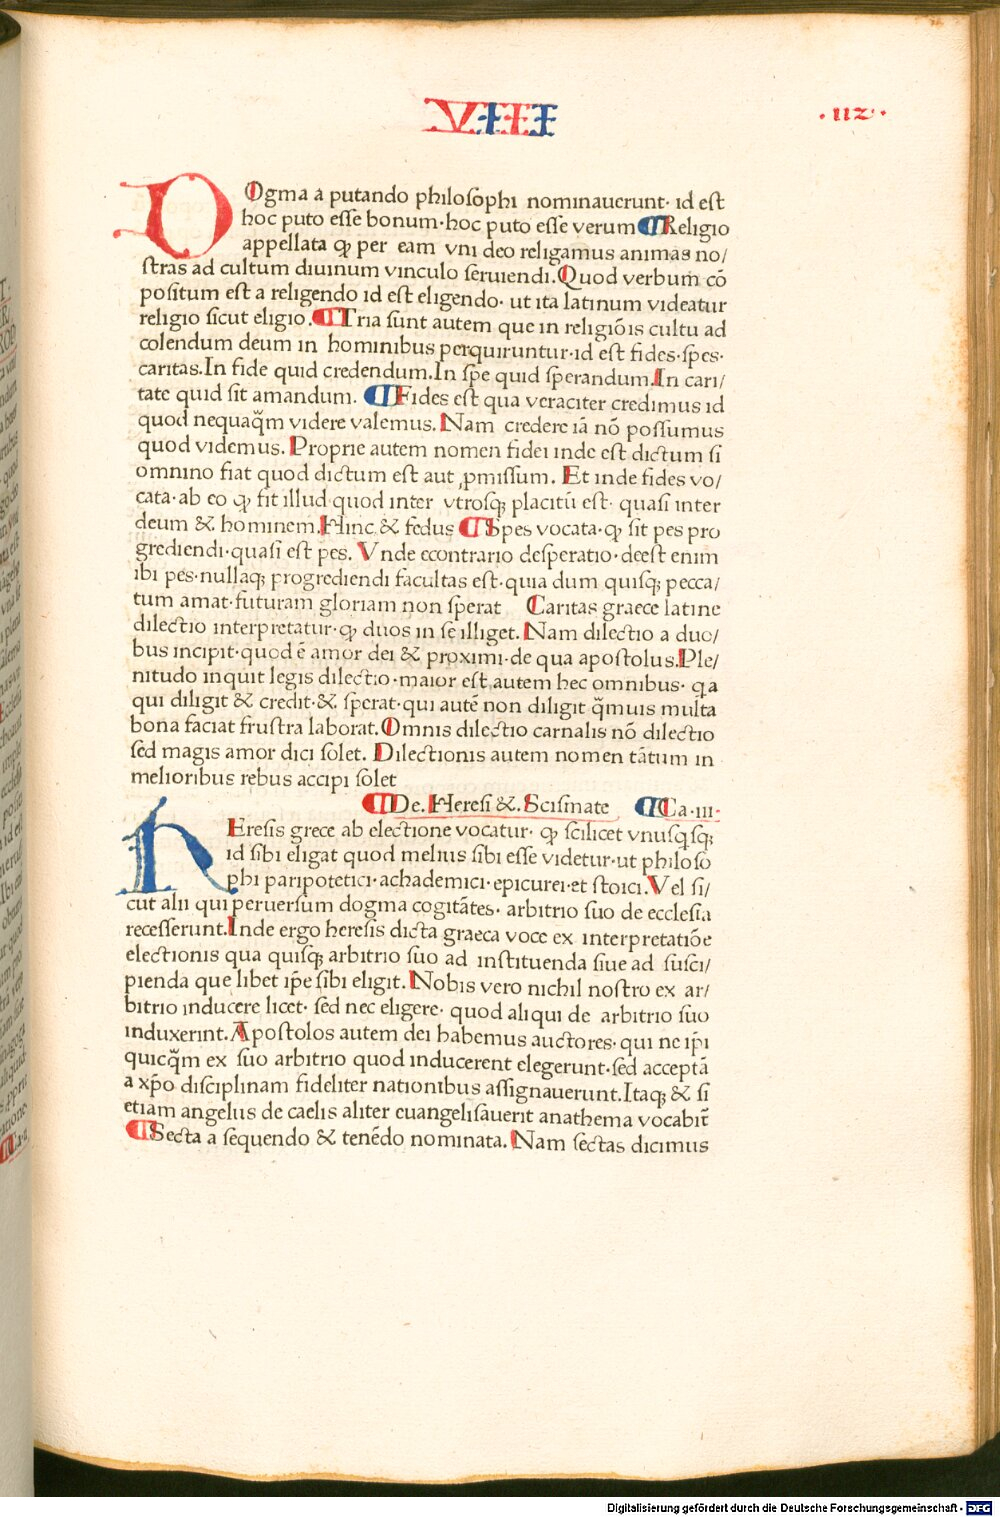 VIII
·112·
DOgma a putando philosophi nominauerunt· id est
hoc puto esse bonum·hoc puto esse verum ¶Religio
appellata ꝙ per eam vni deo religamus animas no/
stras ad cultum diuinum vinculo seruiendi.Quod verbum cō
positum est a religendo id est eligendo· ut ita latinum videatur
religio sicut eligio.¶Tria sunt autem que in religiōis cultu ad
colendum deum in hominibus perquiruntur·id est fides·spes·
caritas.In fide quid credendum.In spe quid sperandum.In cari/
tate quid sit amandum. ¶Fides est qua veraciter credimus id
quod nequaq̃m videre valemus.Nam credere iā nō possumus
quod videmus.Proprie autem nomen fidei inde est dictum si
omnino fiat quod dictum est aut ꝓmissum. Et inde fides vo/
cata·ab eo ꝙ fit illud quod inter vtrosq; placitū est· quasi inter
deum & hominem.Hinc & fedus ¶Spes vocata·ꝙ sit pes pro
grediendi·quasi est pes. Vnde econtrario desperatio·deest enim
ibi pes·nullaq; progrediendi facultas est·quia dum quisq; pecca/
tum amat·futuram gloriam non sperat Caritas graece latine
dilectio interpretatur·ꝙ duos in se illiget.Nam dilectio a duo/
bus incipit·quod ē amor dei & proximi·de qua apostolus.Ple/
nitudo inquit legis dilectio·maior est autem hec omnibus· qa
qui diligit & credit·& sperat·qui autē non diligit q̃muis multa
bona faciat frustra laborat.Omnis dilectio carnalis nō dilectio
sed magis amor dici solet. Dilectionis autem nomen tātum in
melioribus rebus accipi solet
¶De.Heresi &.Scismate ¶Ca·iii·
HEresis grece ab electione vocatur· ꝙ scilicet vnusqsq;
id sibi eligat quod melius sibi esse videtur·ut philoso
phi paripotetici·achademici·epicurei·et stoici.Vel si/
cut alii qui peruersum dogma cogitātes· arbitrio suo de ecclesia
recesserunt.Inde ergo heresis dicta graeca voce ex interpretatiōe
electionis qua quisq; arbitrio suo ad instituenda siue ad susci/
pienda que libet ip̄e sibi eligit.Nobis vero nichil nostro ex ar/
bitrio inducere licet· sed nec eligere· quod aliqui de arbitrio suo
induxerint.Apostolos autem dei habemus auctores· qui ne ip̄i
quicq̃m ex suo arbitrio quod inducerent elegerunt·sed acceptā
a xp̄o disciplinam fideliter nationibus assignauerunt.Itaq; & si
etiam angelus de caelis aliter euangelisauerit anathema vocabit̄
¶Secta a sequendo & tenēdo nominata. Nam sectas dicimus
Digitalisierung gefördert durch die Deutsche Forschungsgemeinschaft - DFG